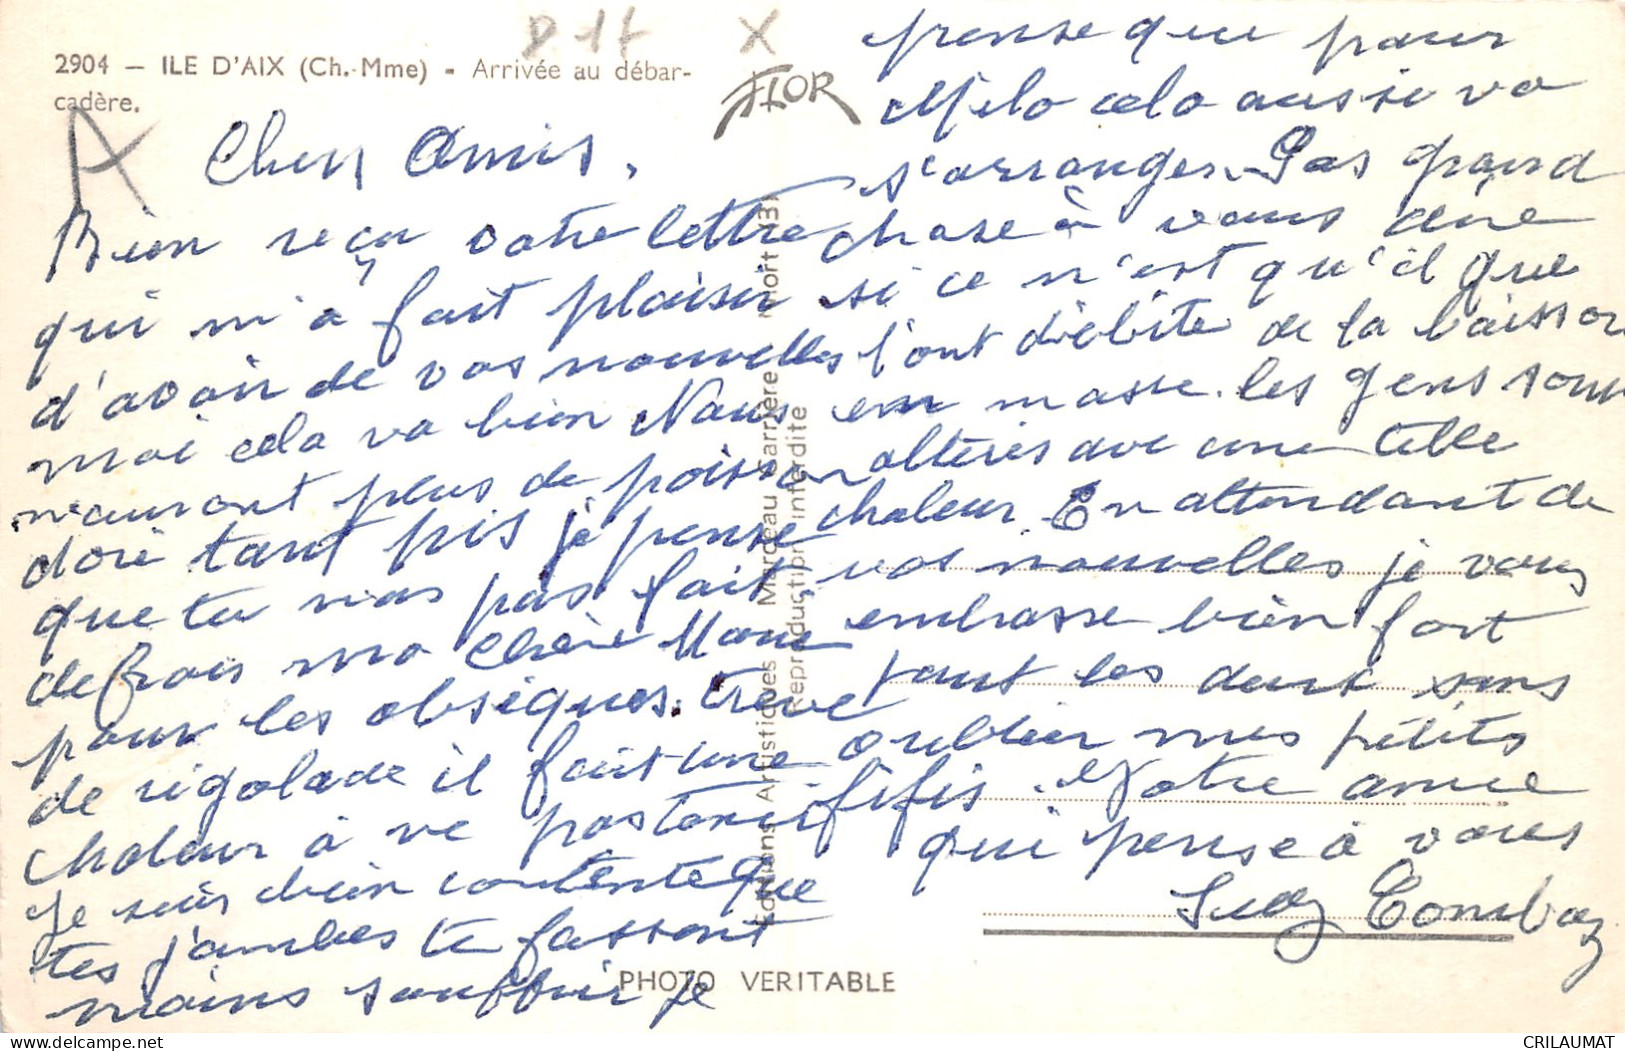 2904 — ILE D'AIX (Ch.-Mme) - Arrivée au débar-
cadère.
D 17 X
FLOR
A
Chers Amis,
Bien reçu votre lettre
qui m'a fait plaisir
d'avoir de vos nouvelles
moi cela va bien Nous
n'auront plus de poisson
doré tant pis je pense
que tu n'as pas fait
de frais ma Chère
pour les obsèques. trève
de rigolade il fait une
chaleur à ne pas tenir
Je suis bien contente que
tes jambes te fassont
moins souffrir je
pense que pour
Milo cela aussi va
s'arranger. Pas grand
chose à vous dire
si ce n'est qu'il que
l'ont débite de la boisson
en masse. les gens sont
altérés avec une telle
chaleur. En attendant de
vos nouvelles je vous
embrasse bien fort
tout les deux sans
oublier mes petits
fifis. Votre amie
qui pense à vous
Suzy Combaz
Editions Artistiques Marceau Carrière Niort
Reproduction interdite
PHOTO VERITABLE
CRILAUMAT